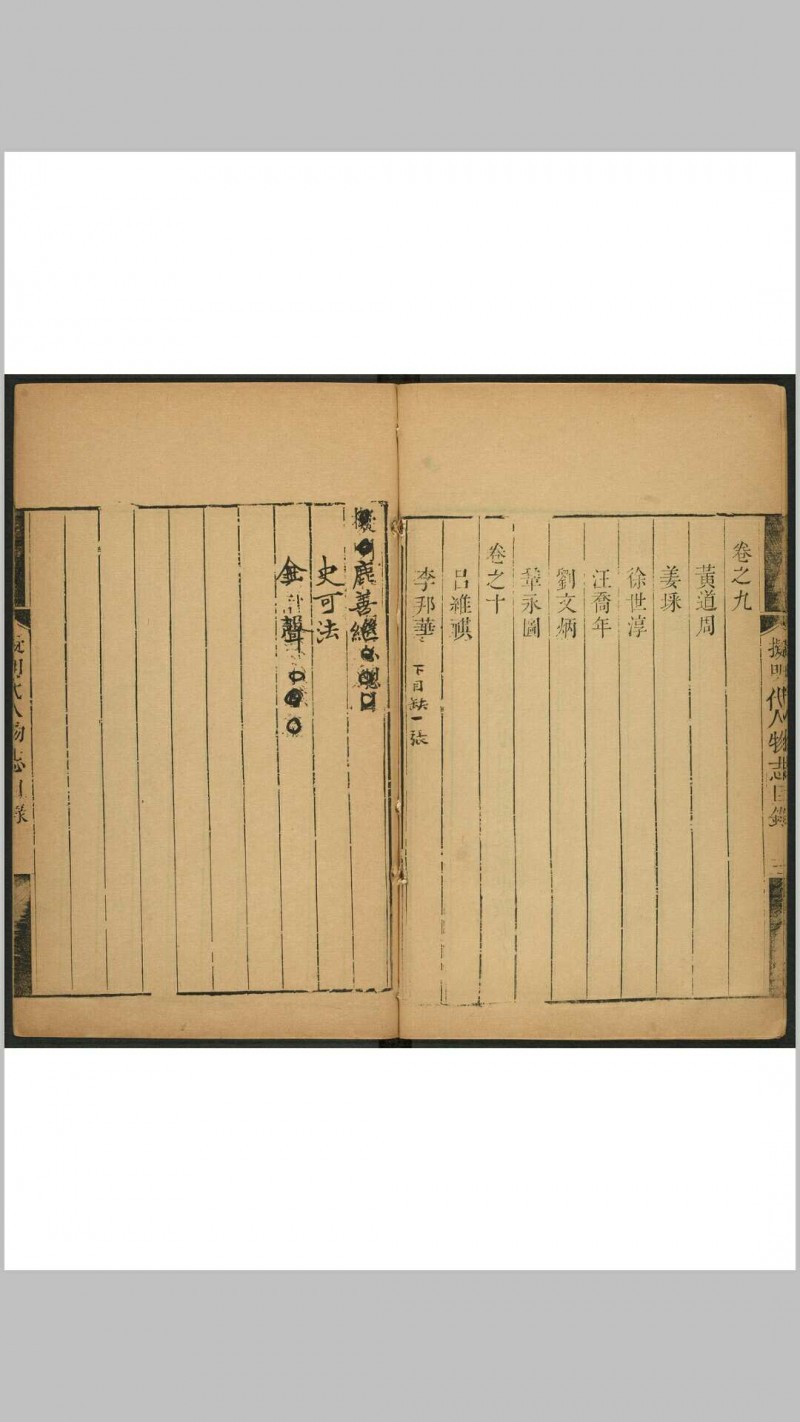 擬明代人物志目錄
卷之九
黃道周
姜埰
徐世淳
汪喬年
劉文炳
鞏永圖
卷之十
呂維祺
李邦華
下目缺一張
鹿善繼
史可法
金聲
擬明代人物志目錄